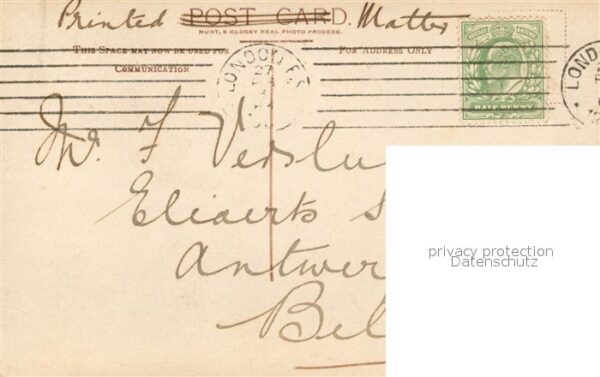 Printed POST CARD. Matter
HUNT, S GLOSSY REAL PHOTO PROCESS.
THIS SPACE MAY NOW BE USED FOR
COMMUNICATION
FOR ADDRESS ONLY
LONDON
LOND
HALFPENNY
Mr. F Verslu
Eliaerts S
Antwer
Bel
privacy protection
Datenschutz